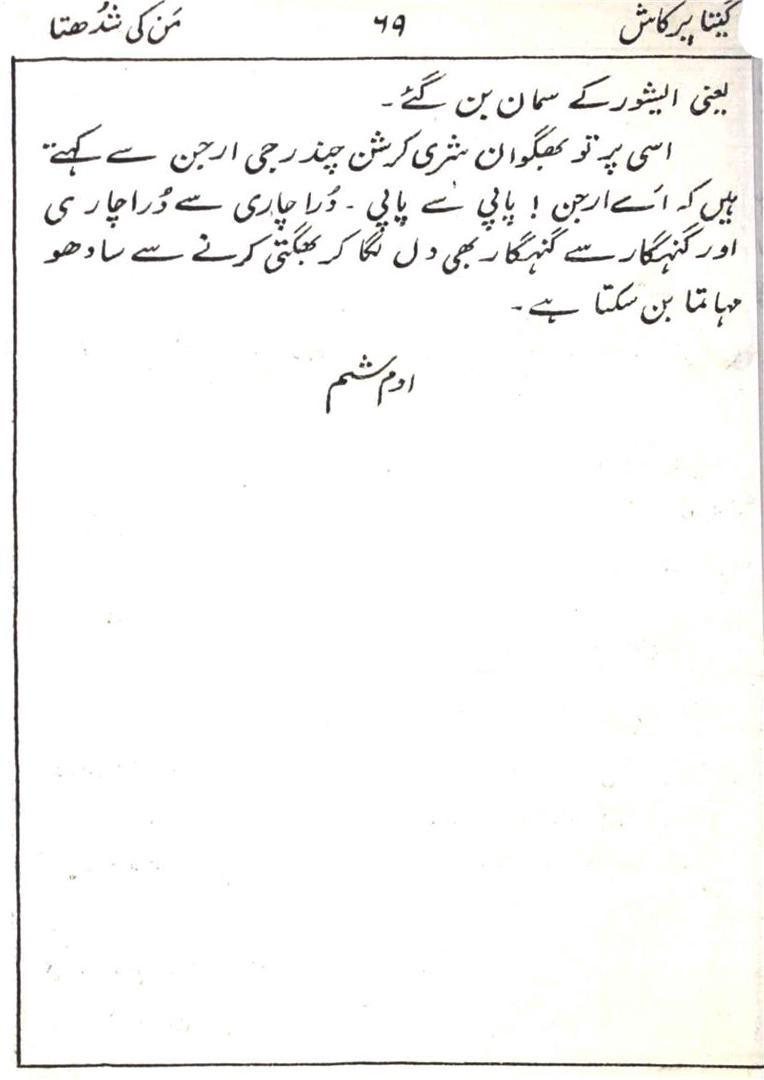 گیتا پرکاش ۶۹ مَن کی شُدھتا
یعنی ایشور کے سمان بن گئے۔
اسی پر تو بھگوان شری کرشن چندر جی ارجن سے کہتے
ہیں کہ اَے ارجن ! پاپی سے پاپی ۔ دُراچاری سے دُراچاری
اور گنہگار سے گنہگار بھی دل لگا کر بھگتی کرنے سے سادھو
مہاتما بن سکتا ہے۔
اوم شم